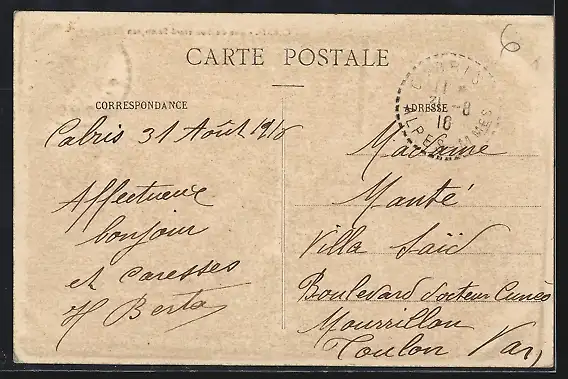 CARTE POSTALE
6
CORRESPONDANCE
Cabris 31 Août 1916
Affectueux
bonjour
et caresses
H Berta
ADRESSE
CABRIS
31 -8
16
ALPES MMES
Madame
Manté
Villa Saïd
Boulevard docteur Cunéo
Mourrillon
Toulon Var